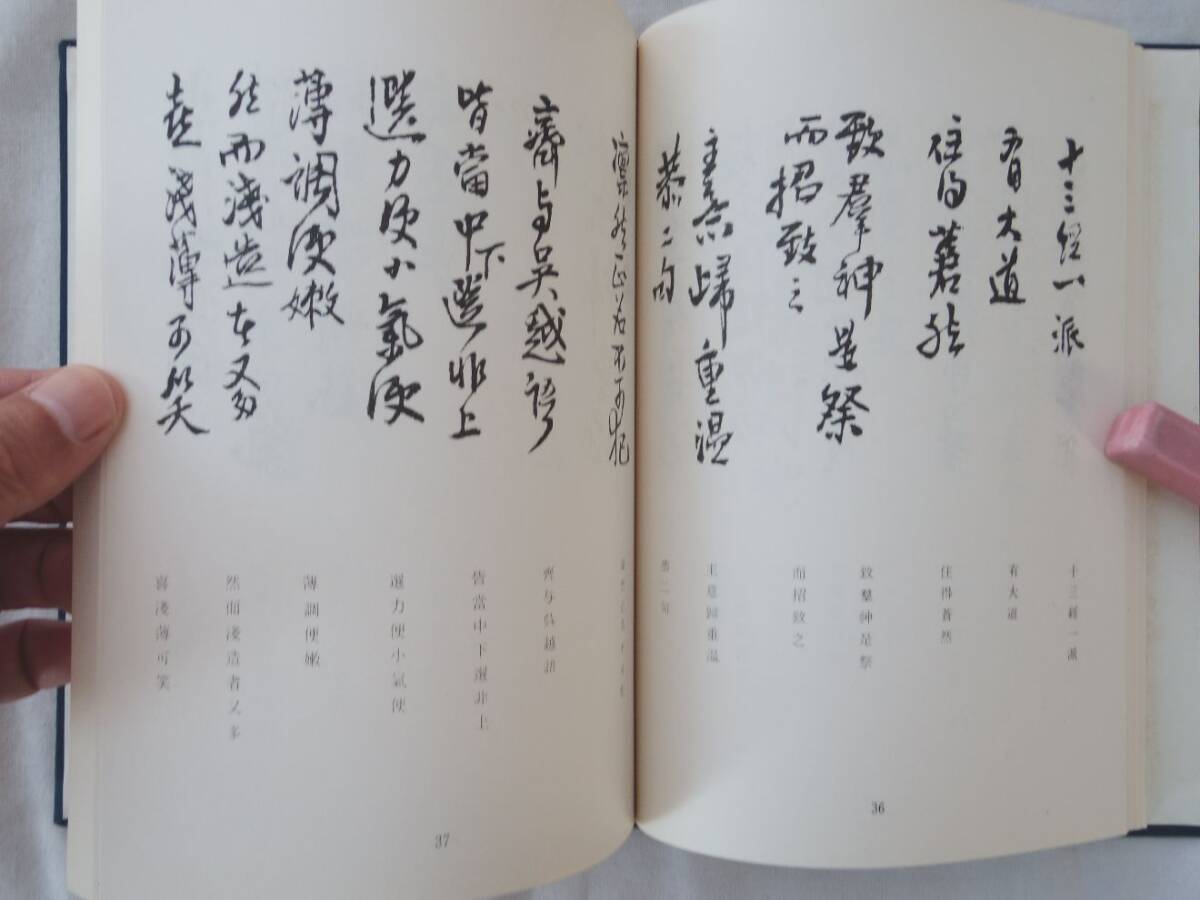 十三經一派
有大道
住得蒼然
致羣神是祭
而招致之
主意歸重溫
恭二句
十三經一派
有大道
住得蒼然
致羣神是祭
而招致之
主意歸重溫
恭二句
36
不可犯
齊与吳越語
皆當中下選非上
選力便小氣便
薄調便嫩
然而淺造者又多
喜淺薄可笑
齊与吳越語
皆當中下選非上
選力便小氣便
薄調便嫩
然而淺造者又多
喜淺薄可笑
37